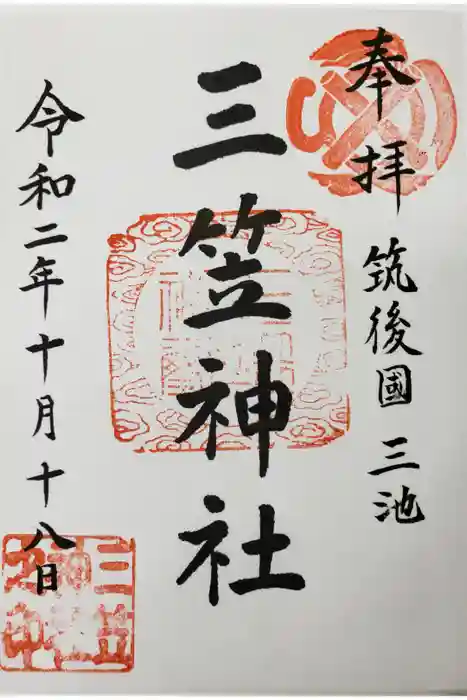 奉拝
筑後國 三池
三笠神社
令和二年十月十八日
三笠
神社
之印